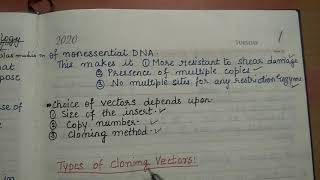 ology
2020
TUESDAY
1
of nonessential DNA.
This makes it ① More resistant to shear damage
that
② Presence of multiple copies
pose
③ No multiple sites for any restriction enzyme
Choice of vectors depends upon
se of
① Size of the insert.
② Copy number.
③ Cloning method.
Types of Cloning Vectors: